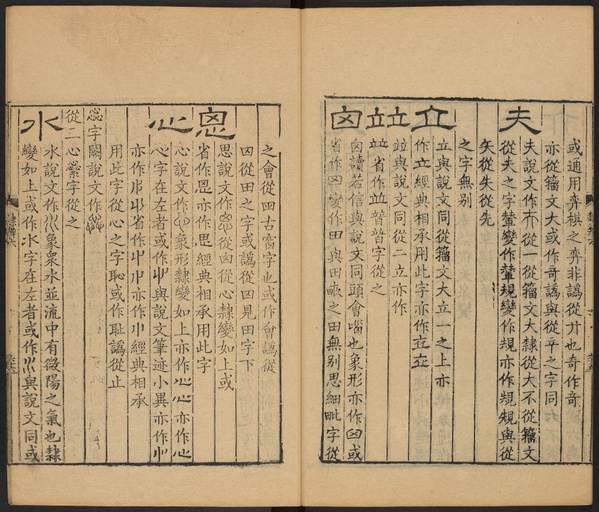 或通用弈棋之弈非譌從廾也奇作竒
亦從籀文大或作竒譌與從辛之字同
夫
夫說文作夫從一從籀文大隸從大不從籀文
從夫之字輦變作輦規變作規亦作䂓䂓與從
矢從失從先
之字無別
立
立與說文同從籀文大立一之上亦
作立經典相承用此字亦作
竝
竝與說文同從二立亦作
並省作並暜普字從之
囟
囟讀若信與說文同頭會匘也象形亦作囟或
省作囟變作田與田畝之田無別思細毗字從
之會從囧古窗字也或作會譌從
囧從田之字或譌從四見田字下
恖
思說文作恖從囟從心隸變如上或
省作恩亦作思經典相承用此字
心
心說文作心象形隸變如上亦作心亦作心
心字在左者或作與說文筆迹小異亦作
亦作省作亦作小經典相承
用此字從心之字恥或作耻譌從止
惢字闕說文作惢
從三心縈字從之
水
水說文作水象衆水並流中有微陽之氣也隸
變如上或作水字在左者或作與說文同或